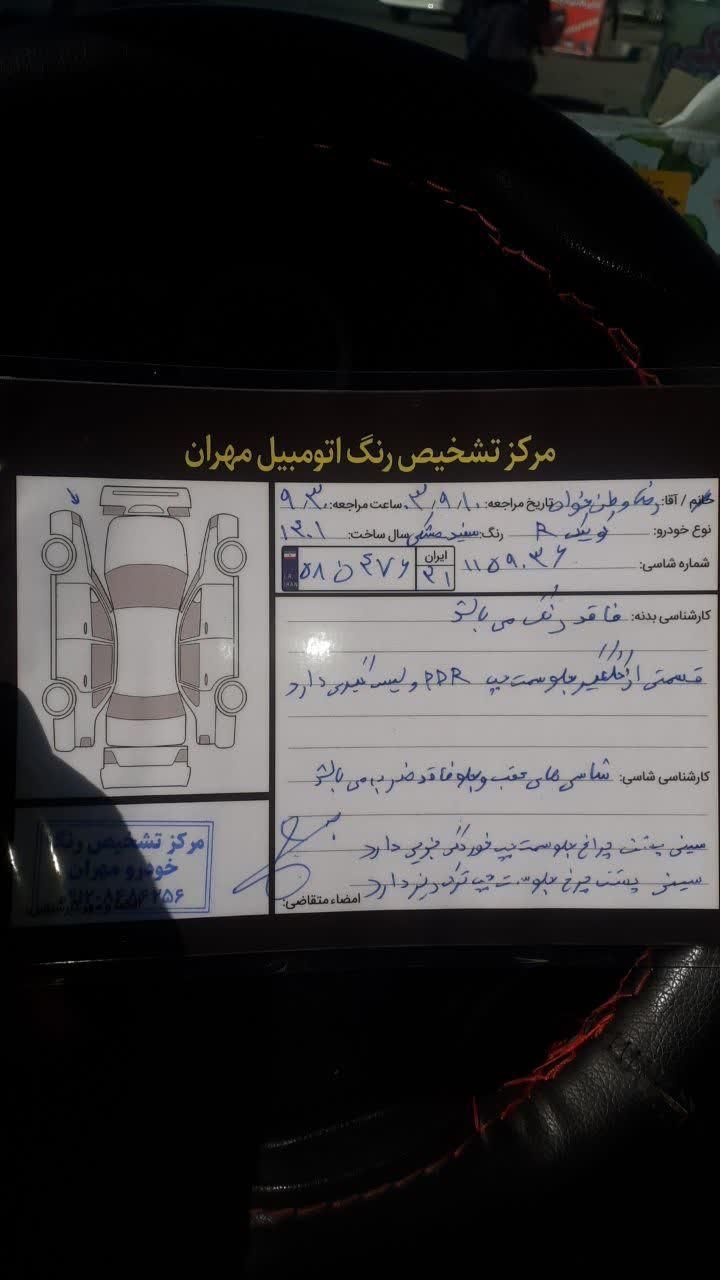 مرکز تشخیص رنگ اتومبیل مهران
خانم / آقا: تاریخ مراجعه: ۳/۹/۱۰ ساعت مراجعه: ۹/۳۰
نوع خودرو: کوییک R رنگ: سفید مشکی سال ساخت: ۱۴۰۱
شماره شاسی: ۱۱۵۹۰۳۶
ایران ۳۱ ۴۷۶ ن ۵۸
I.R. IRAN
کارشناسی بدنه: فاقد رنگ می باشد
قسمتی از گلگیر جلو سمت چپ PDR و لیسه گیری دارد
کارشناسی شاسی: شاسی های عقب و جلو فاقد ضرب می باشد
سینی پشت چراغ جلو سمت چپ خوردگی جزیی دارد
سینی پشت چراغ جلو سمت چپ ترک ریز دارد
امضاء متقاضی:
مرکز تشخیص رنگ
خودرو مهران